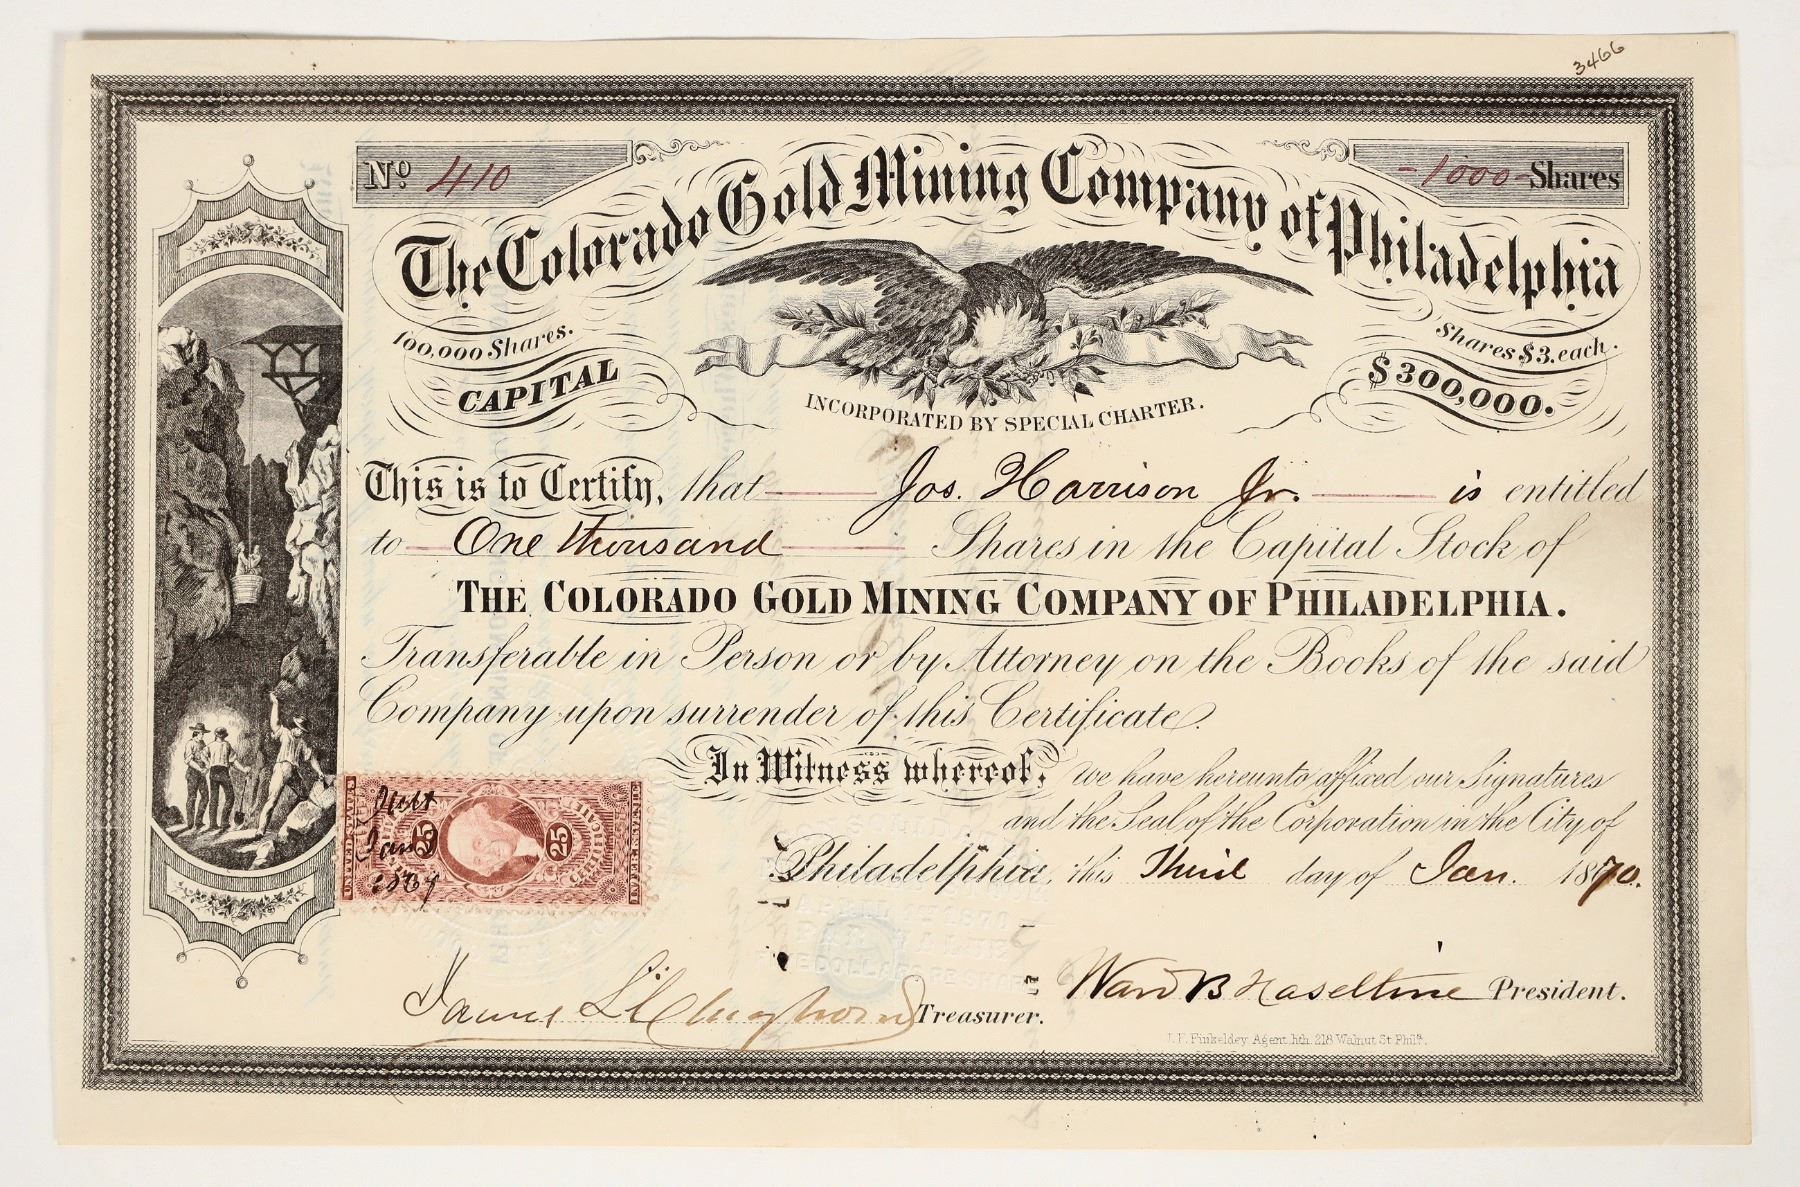 3466
No. 410
-1000- Shares
The Colorado Gold Mining Company of Philadelphia
100,000 Shares.
Shares $3. each.
CAPITAL
$300,000.
INCORPORATED BY SPECIAL CHARTER.
This is to Certify, that Jos. Harrison Jr. is entitled
to One thousand Shares in the Capital Stock of
THE COLORADO GOLD MINING COMPANY OF PHILADELPHIA.
Transferable in Person or by Attorney on the Books of the said
Company upon surrender of this Certificate.
In Witness whereof, we have hereunto affixed our Signatures
and the Seal of the Corporation in the City of
Philadelphia, this Third day of Jan. 1870.
25 25
Jan
Ward B Haseltine President.
James Treasurer.
J. F. Finkeldey Agent lith. 218 Walnut St Phila.